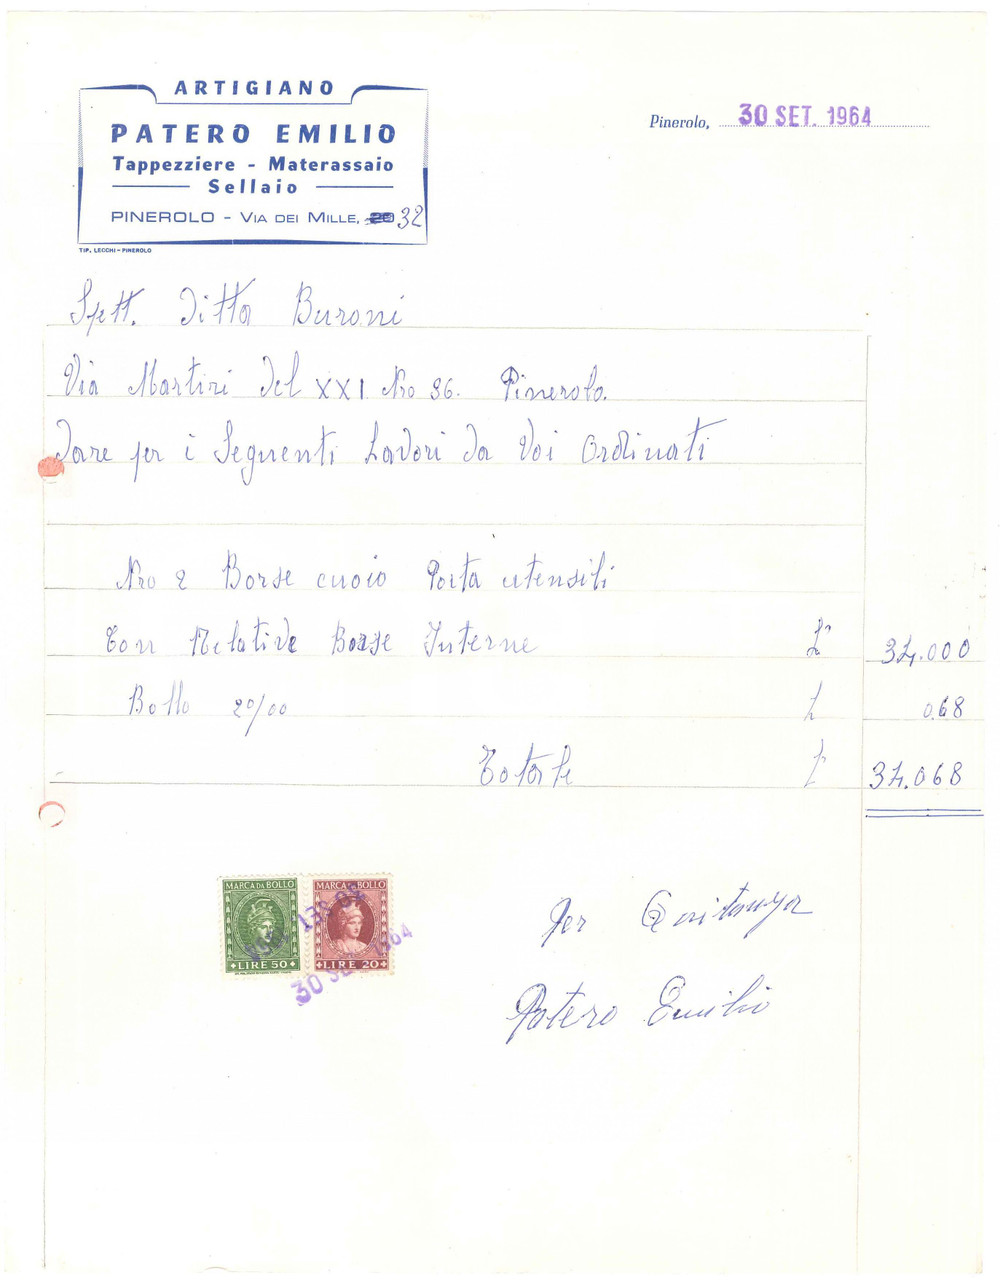 ARTIGIANO
PATERO EMILIO
Tappezziere - Materassaio
Sellaio
PINEROLO - VIA DEI MILLE, 20 32
TIP. LECCHI - PINEROLO
Pinerolo, 30 SET. 1964
Spett. Ditta Buroni
Via Martiri del XXI Nro 96. Pinerolo.
Dare per i Seguenti Lavori da Voi Ordinati
Nro 2 Borse cuoio Porta utensili
Con Relative Borse Interne L 34.000
Bollo 20/00 L 068
Totale L 34.068
MARCA DA BOLLO MARCA DA BOLLO
LIRE 50 LIRE 20
30 SET 1964
Per Quitanza
Patero Emilio